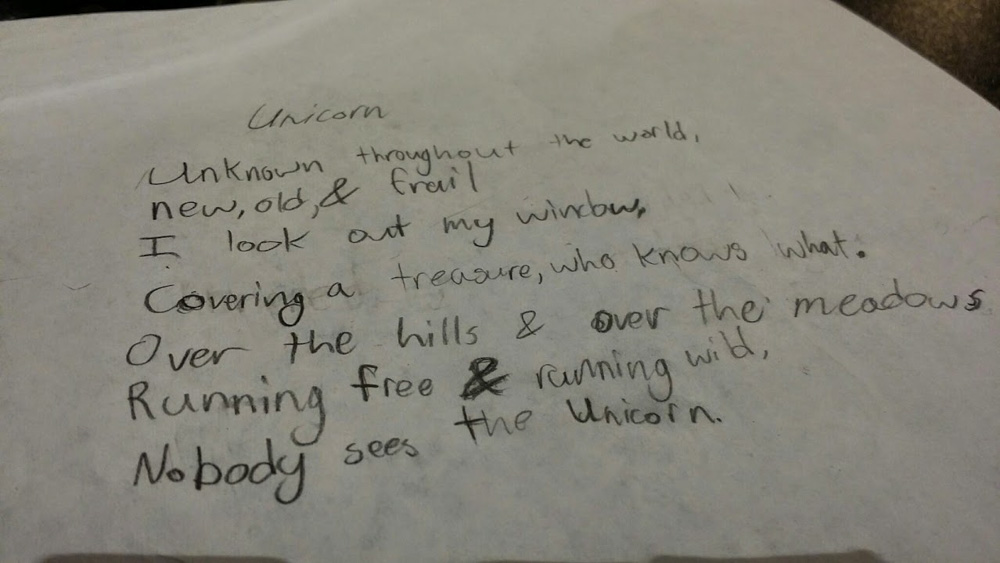 Unicorn
Unknown throughout the world,
new, old, & frail
I look out my window,
Covering a treasure, who knows what.
Over the hills & over the meadows
Running free & running wild,
Nobody sees the Unicorn.